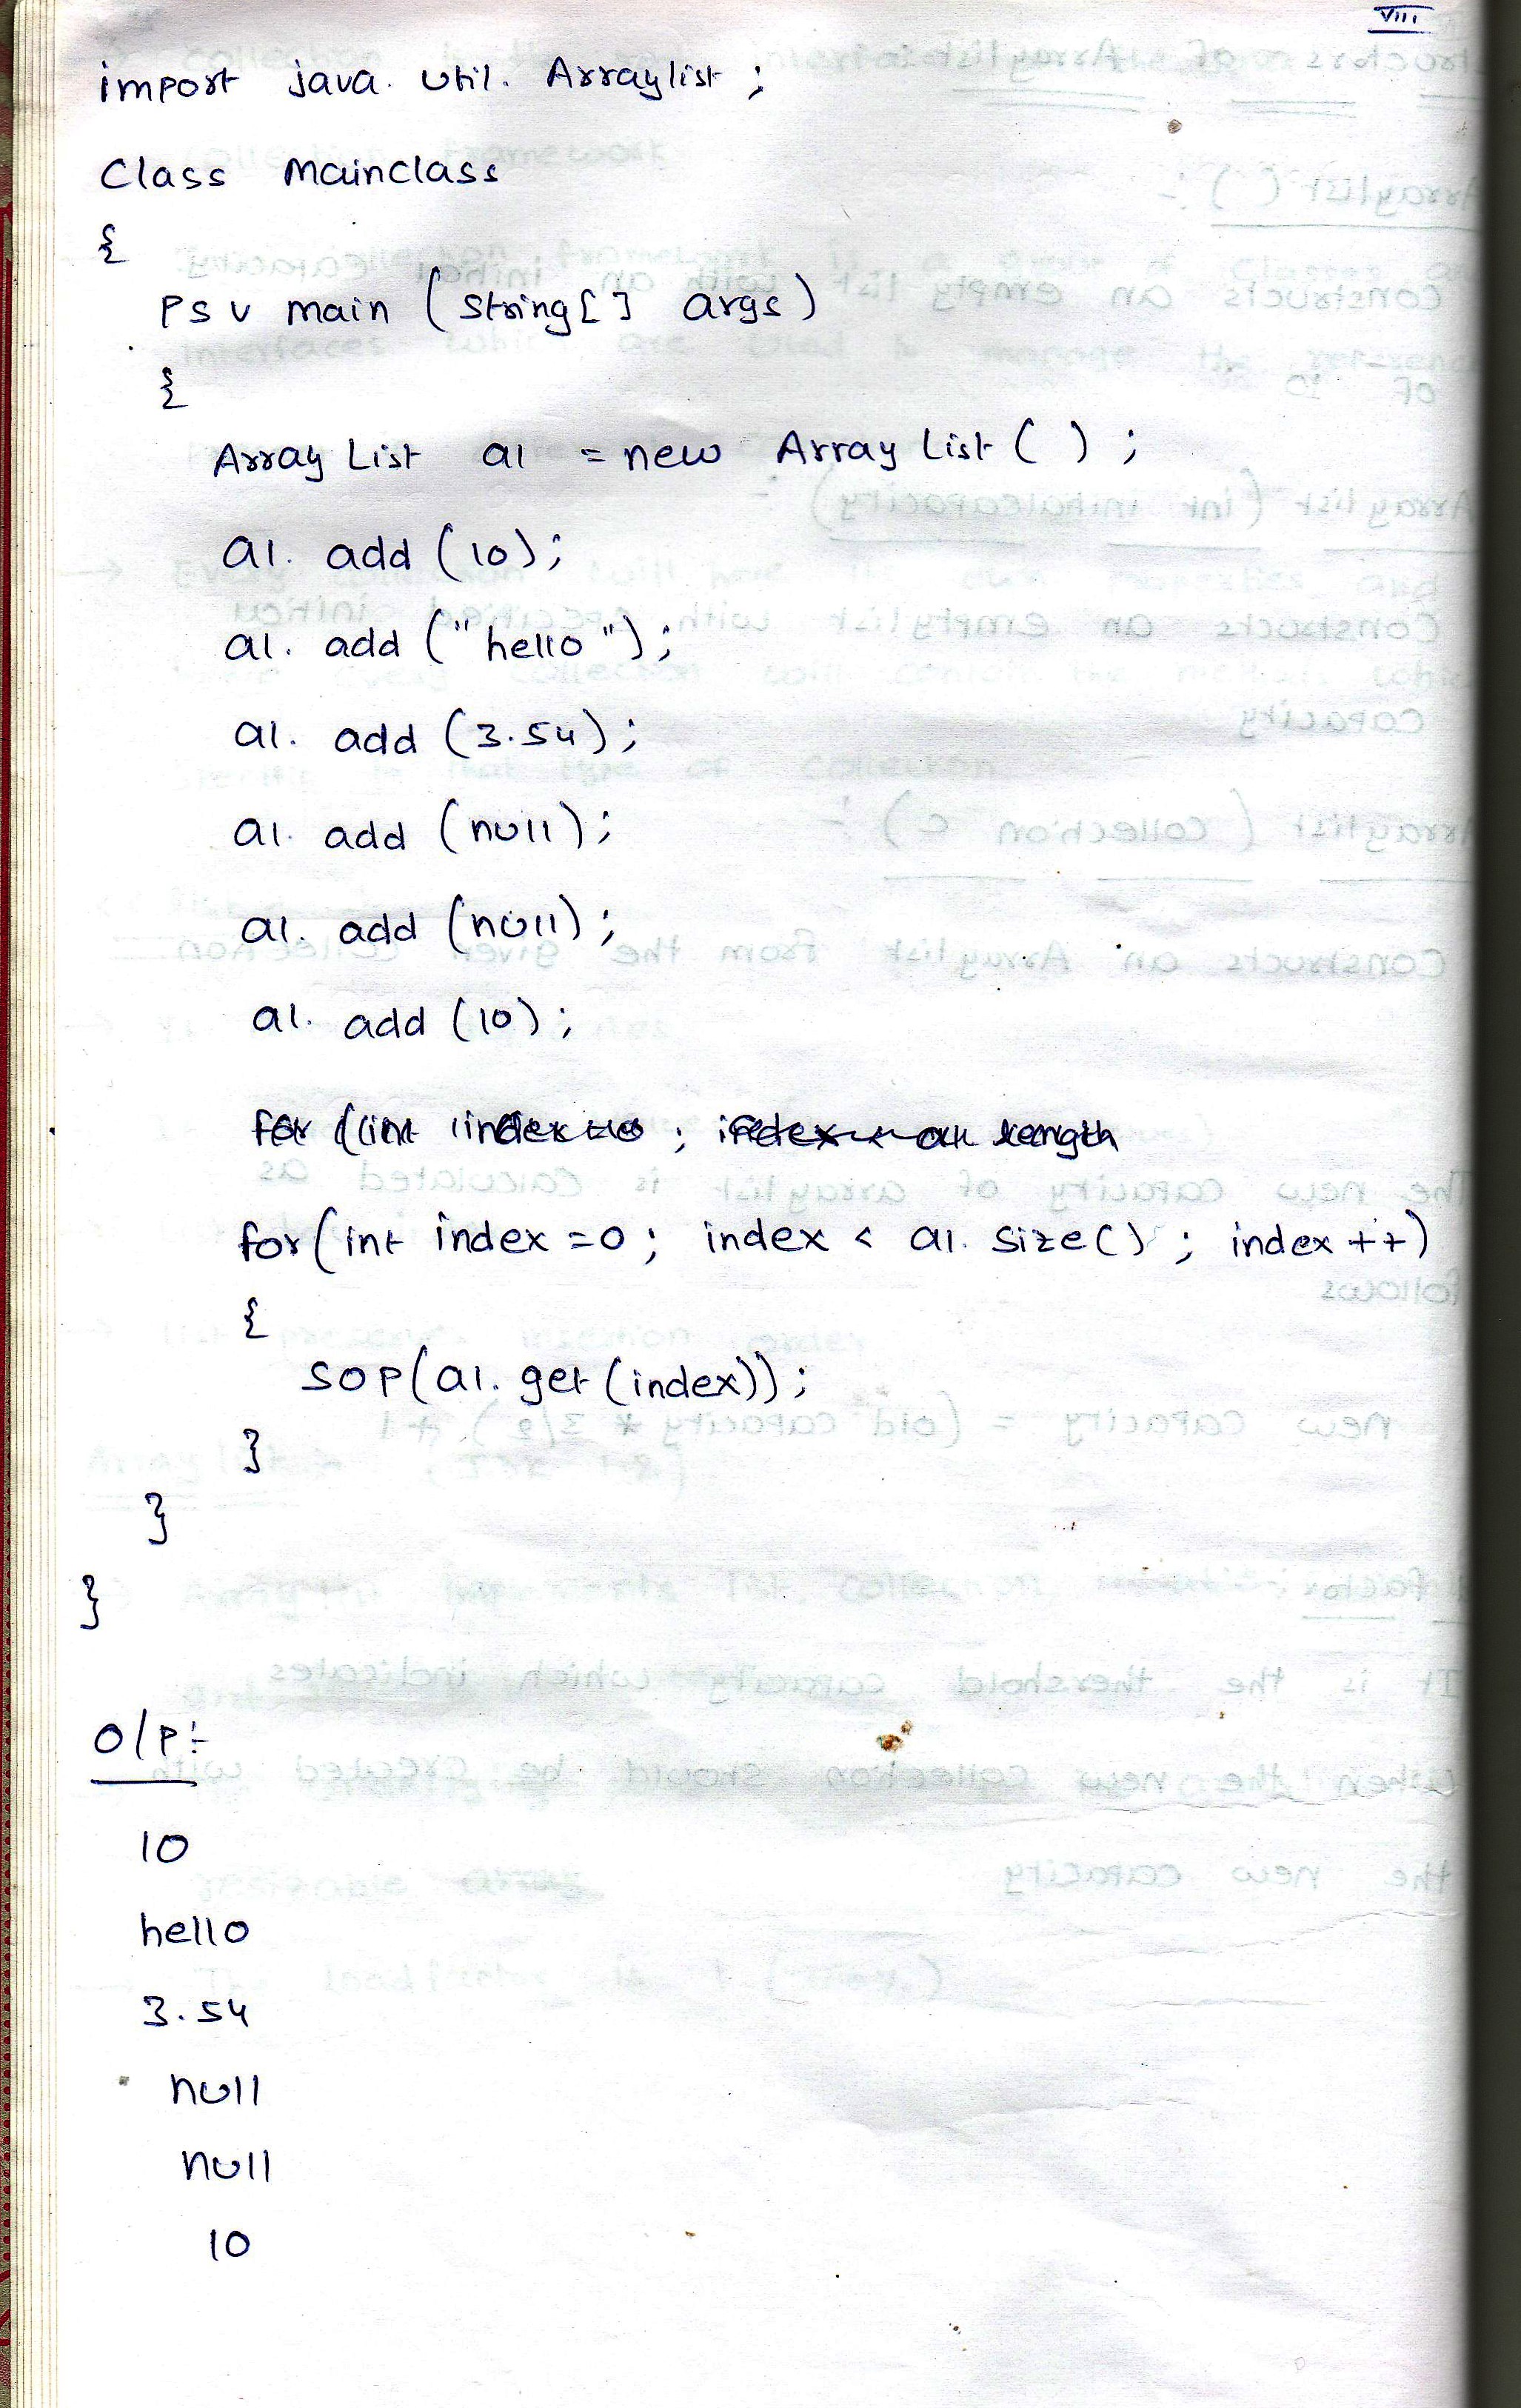 VIII
import java. util. Arraylist ;
Class Mainclass
{
PSV main (String[] args)
{
Array List al = new Array List ( ) ;
al. add (10);
al. add ("hello");
al. add (3.54);
al. add (null);
al. add (null);
al. add (10);
for (int index = 0 ; index < al. length
for (int index = 0; index < al. size() ; index ++)
{
SOP(al. get (index));
}
}
}
O/P:-
10
hello
3.54
null
null
10